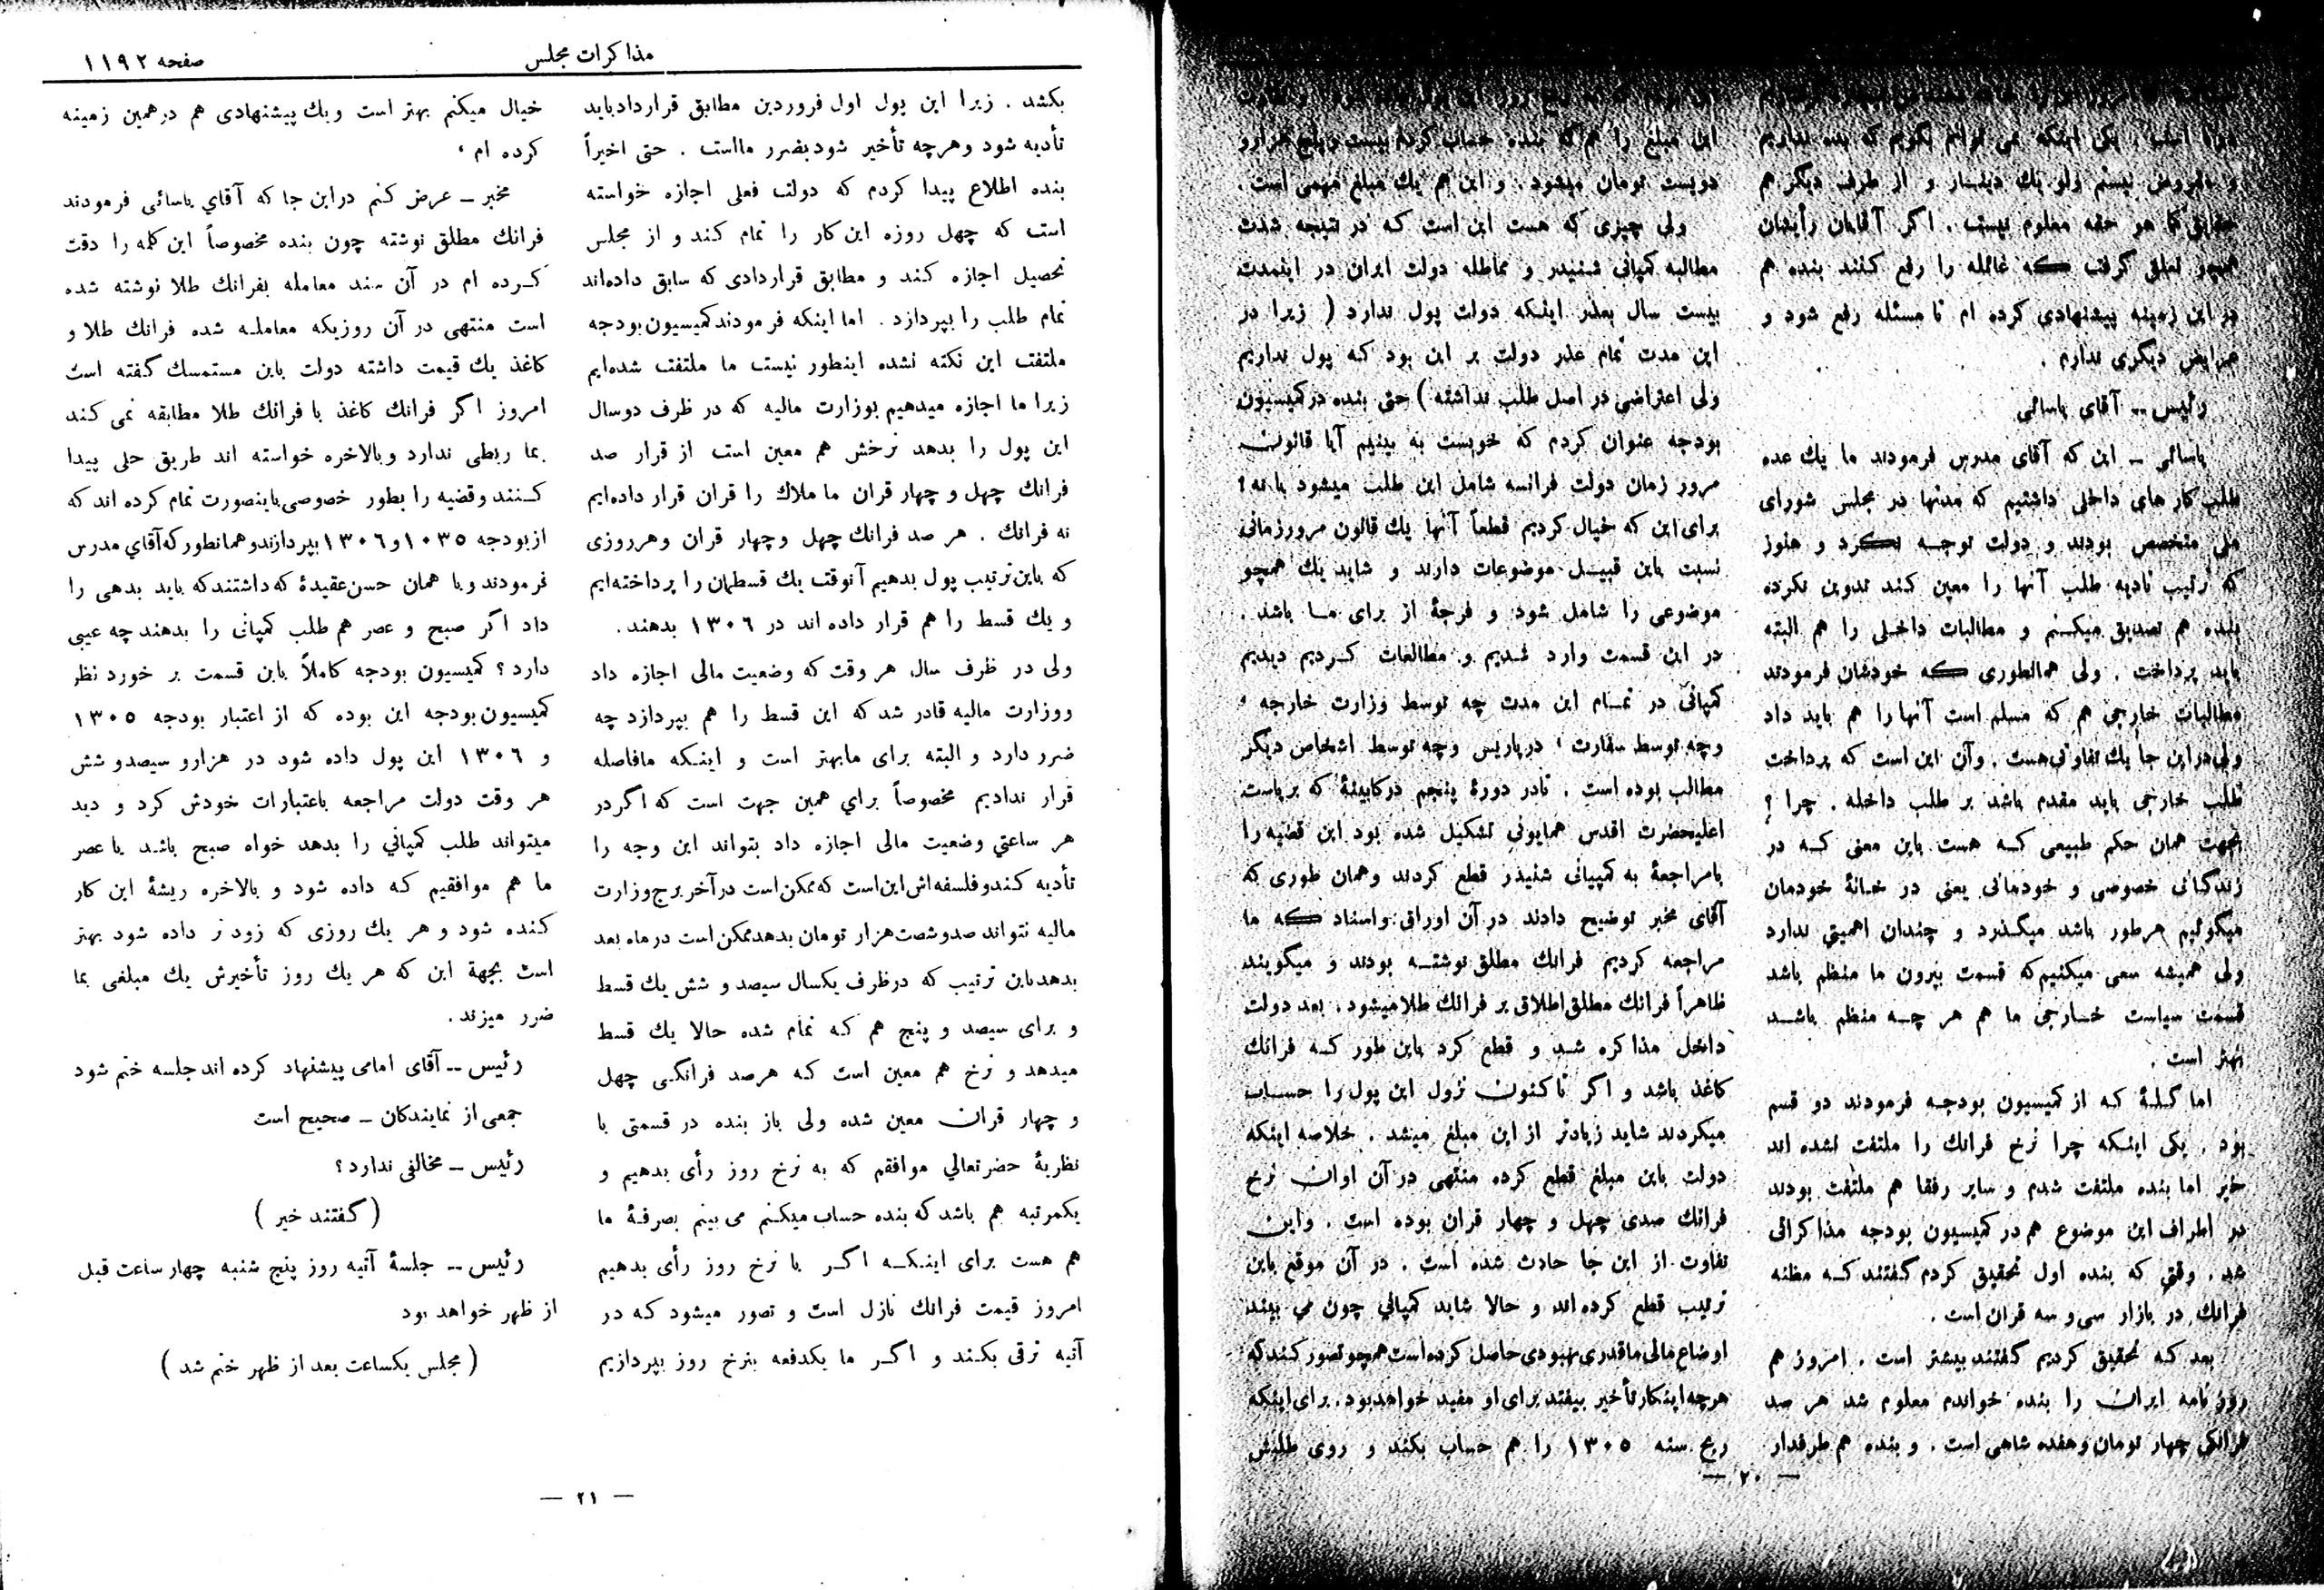 این مبلغ را هم که بنده حساب کردم بیست و پنج هزار و
و مفروض نیستم ولو یك دینار و از طرف دیگر هم
حقانی کما هو حقه معلوم نیست . اگر آقایان رأیشان
همچو تعلق گرفت که غائله را رفع کنند بنده هم
در این زمینه پیشنهادی کرده ام تا مسئله رفع شود و
عرایض دیگری ندارم .
رئیس -- آقای یاسائی
یاسائی - این که آقای مدرس فرمودند ما یك عده
طلب کار های داخلی داشتیم که مدتها در مجلس شورای
ملی متحصن بودند و دولت توجه نکرد و هنوز
که ترتیب تادیه طلب آنها را معین کند تدوین نکرده
بنده هم تصدیق میکنم و مطالبات داخلی را هم البته
باید پرداخت . ولی همانطوری که خودشان فرمودند
مطالبات خارجی هم که مسلم است آنها را هم باید داد
ولی در این جا یك تفاوتی هست . وآن این است که پرداخت
طلب خارجی باید مقدم باشد بر طلب داخله . چرا ؟
بجهت همان حکم طبیعی که هست باین معنی که در
زندگانی خصوصی و خودمانی یعنی در خانهٔ خودمان
میگوئیم هرطور باشد میگذرد و چندان اهمیتی ندارد
ولی همیشه سعی میکنیم که قسمت بیرون ما منظم باشد
قسمت سیاست خارجی ما هم هر چه منظم باشد
بهتر است .
اما گلهٔ که از کمیسیون بودجه فرمودند دو قسم
بود . یکی اینکه چرا نرخ فرانك را ملتفت نشده اند
خیر اما بنده ملتفت شدم و سایر رفقا هم ملتفت بودند
در اطراف این موضوع هم در کمیسیون بودجه مذاکراتی
شد . وقتی که بنده اول تحقیق کردم گفتند که مظنه
فرانك در بازار سی و سه قران است .
بعد که تحقیق کردیم گفتند بیشتر است . امروز هم
روزنامه ایران را بنده خواندم معلوم شد هر صد
فرانکی چهار تومان و هفده شاهی است . و بنده هم طرفدار
دویست تومان میشود . و این هم یك مبلغ مهمی است .
ولی چیزی که هست این است که در نتیجه شدت
مطالبه کمپانی شنیدر و مماطله دولت ایران در اینمدت
بیست سال بعذر اینکه دولت پول ندارد ( زیرا در
این مدت تمام عذر دولت بر این بود که پول نداریم
ولی اعتراضی در اصل طلب نداشته ) حتی بنده در کمیسیون
بودجه عنوان کردم که خوبست به بینیم آیا قانون
مرور زمان دولت فرانسه شامل این طلب میشود یا نه ؟
برای این که خیال کردیم قطعاً آنها یك قانون مرور زمانی
نسبت باین قبیل موضوعات دارند و شاید یك همچو
موضوعی را شامل شود و فرجهٔ از برای ما باشد .
در این قسمت وارد شدیم و مطالعات کردیم دیدیم
کمپانی در تمام این مدت چه توسط وزارت خارجه ،
وچه توسط سفارت ، در پاریس وچه توسط اشخاص دیگر
مطالب بوده است . تا در دورهٔ پنجم در کابینهٔ که بریاست
اعلیحضرت اقدس همایونی تشکیل شده بود این قضیه را
با مراجعهٔ به کمپانی شنیدر قطع کردند وهمان طوری که
آقای مخبر توضیح دادند در آن اوراق واسناد که ما
مراجعه کردیم فرانك مطلق نوشته بودند و میگویند
ظاهراً فرانك مطلق اطلاق بر فرانك طلا میشود . بعد دولت
داخل مذاکره شد و قطع کرد باین طور که فرانك
کاغذ باشد و اگر تاکنون نزول این پول را حساب
میکردند شاید زیادتر از این مبلغ میشد . خلاصه اینکه
دولت باین مبلغ قطع کرده منتهی در آن اوان نرخ
فرانك صدی چهل و چهار قران بوده است . واین
تفاوت از این جا حادث شده است . در آن موقع باین
ترتیب قطع کرده اند و حالا شاید کمپانی چون می بیند
اوضاع مالی ما قدری بهبودی حاصل کرده است همچو تصور کند که
هرچه اینکار تأخیر بیفتد برای او مفید خواهد بود . برای اینکه
ربح سنه ۱۳۰۵ را هم حساب بکند و روی طلبش
— ۲۰ —
مذاکرات مجلس
صفحه ۱۱۹۲
بکشد . زیرا این پول اول فروردین مطابق قرارداد باید
تأدیه شود و هرچه تأخیر شود بضرر ما است . حتی اخیراً
بنده اطلاع پیدا کردم که دولت فعلی اجازه خواسته
است که چهل روزه این کار را تمام کند و از مجلس
تحصیل اجازه کند و مطابق قراردادی که سابق داده اند
تمام طلب را بپردازد . اما اینکه فرمودند کمیسیون بودجه
ملتفت این نکته نشده اینطور نیست ما ملتفت شده ایم
زیرا ما اجازه میدهیم بوزارت مالیه که در ظرف دوسال
این پول را بدهد نرخش هم معین است از قرار صد
فرانك چهل و چهار قران ما ملاك را قران قرار داده ایم
نه فرانك . هر صد فرانك چهل وچهار قران وهرروزی
که باین ترتیب پول بدهیم آنوقت یك قسطمان را پرداخته ایم
و یك قسط را هم قرار داده اند در ۱۳۰۶ بدهند .
ولی در ظرف سال هر وقت که وضعیت مالی اجازه داد
ووزارت مالیه قادر شد که این قسط را هم بپردازد چه
ضرر دارد و البته برای ما بهتر است و اینکه ما فاصله
قرار ندادیم مخصوصاً برای همین جهت است که اگر در
هر ساعتی وضعیت مالی اجازه داد بتواند این وجه را
تأدیه کند و فلسفه اش این است که ممکن است در آخر برج وزارت
مالیه نتواند صدوشصت هزار تومان بدهد ممکن است در ماه بعد
بدهد باین ترتیب که درظرف یکسال سیصد و شش یك قسط
و برای سیصد و پنج هم که تمام شده حالا یك قسط
میدهد و نرخ هم معین است که هرصد فرانکی چهل
و چهار قران معین شده ولی باز بنده در قسمتی با
نظریهٔ حضرتعالی موافقم که به نرخ روز رأی بدهیم و
یکمرتبه هم باشد که بنده حساب میکنم می بینم بصرفهٔ ما
هم هست برای اینکه اگر با نرخ روز رأی بدهیم
امروز قیمت فرانك نازل است و تصور میشود که در
آتیه ترقی بکند و اگر ما یکدفعه بنرخ روز بپردازیم
خیال میکنم بهتر است و یك پیشنهادی هم در همین زمینه
کرده ام ،
مخبر - عرض کنم در این جا که آقای یاسائی فرمودند
فرانك مطلق نوشته چون بنده مخصوصاً این کلمه را دقت
کرده ام در آن سند معامله بفرانك طلا نوشته شده
است منتهی در آن روزیکه معامله شده فرانك طلا و
کاغذ یك قیمت داشته دولت باین مستمسك گفته است
امروز اگر فرانك کاغذ با فرانك طلا مطابقه نمی کند
بما ربطی ندارد و بالاخره خواسته اند طریق حلی پیدا
کنند و قضیه را بطور خصوصی باینصورت تمام کرده اند که
از بودجه ۱۰۳۵ و ۱۳۰۶ بپردازند و همانطور که آقای مدرس
فرمودند و با همان حسن عقیدهٔ که داشتند که باید بدهی را
داد اگر صبح و عصر هم طلب کمپانی را بدهند چه عیبی
دارد ؟ کمیسیون بودجه کاملاً باین قسمت بر خورد نظر
کمیسیون بودجه این بوده که از اعتبار بودجه ۱۳۰۵
و ۱۳۰۶ این پول داده شود در هزارو سیصدو شش
هر وقت دولت مراجعه باعتبارات خودش کرد و دید
میتواند طلب کمپانی را بدهد خواه صبح باشد یا عصر
ما هم موافقیم که داده شود و بالاخره ریشهٔ این کار
کنده شود و هر یك روزی که زود تر داده شود بهتر
است بجهة این که هر یك روز تأخیرش یك مبلغی بما
ضرر میزند .
رئیس -- آقای امامی پیشنهاد کرده اند جلسه ختم شود
جمعی از نمایندگان - صحیح است
رئیس - مخالفی ندارد ؟
( گفتند خیر )
رئیس -- جلسهٔ آتیه روز پنج شنبه چهار ساعت قبل
از ظهر خواهد بود
( مجلس یکساعت بعد از ظهر ختم شد )
— ۲۱ —